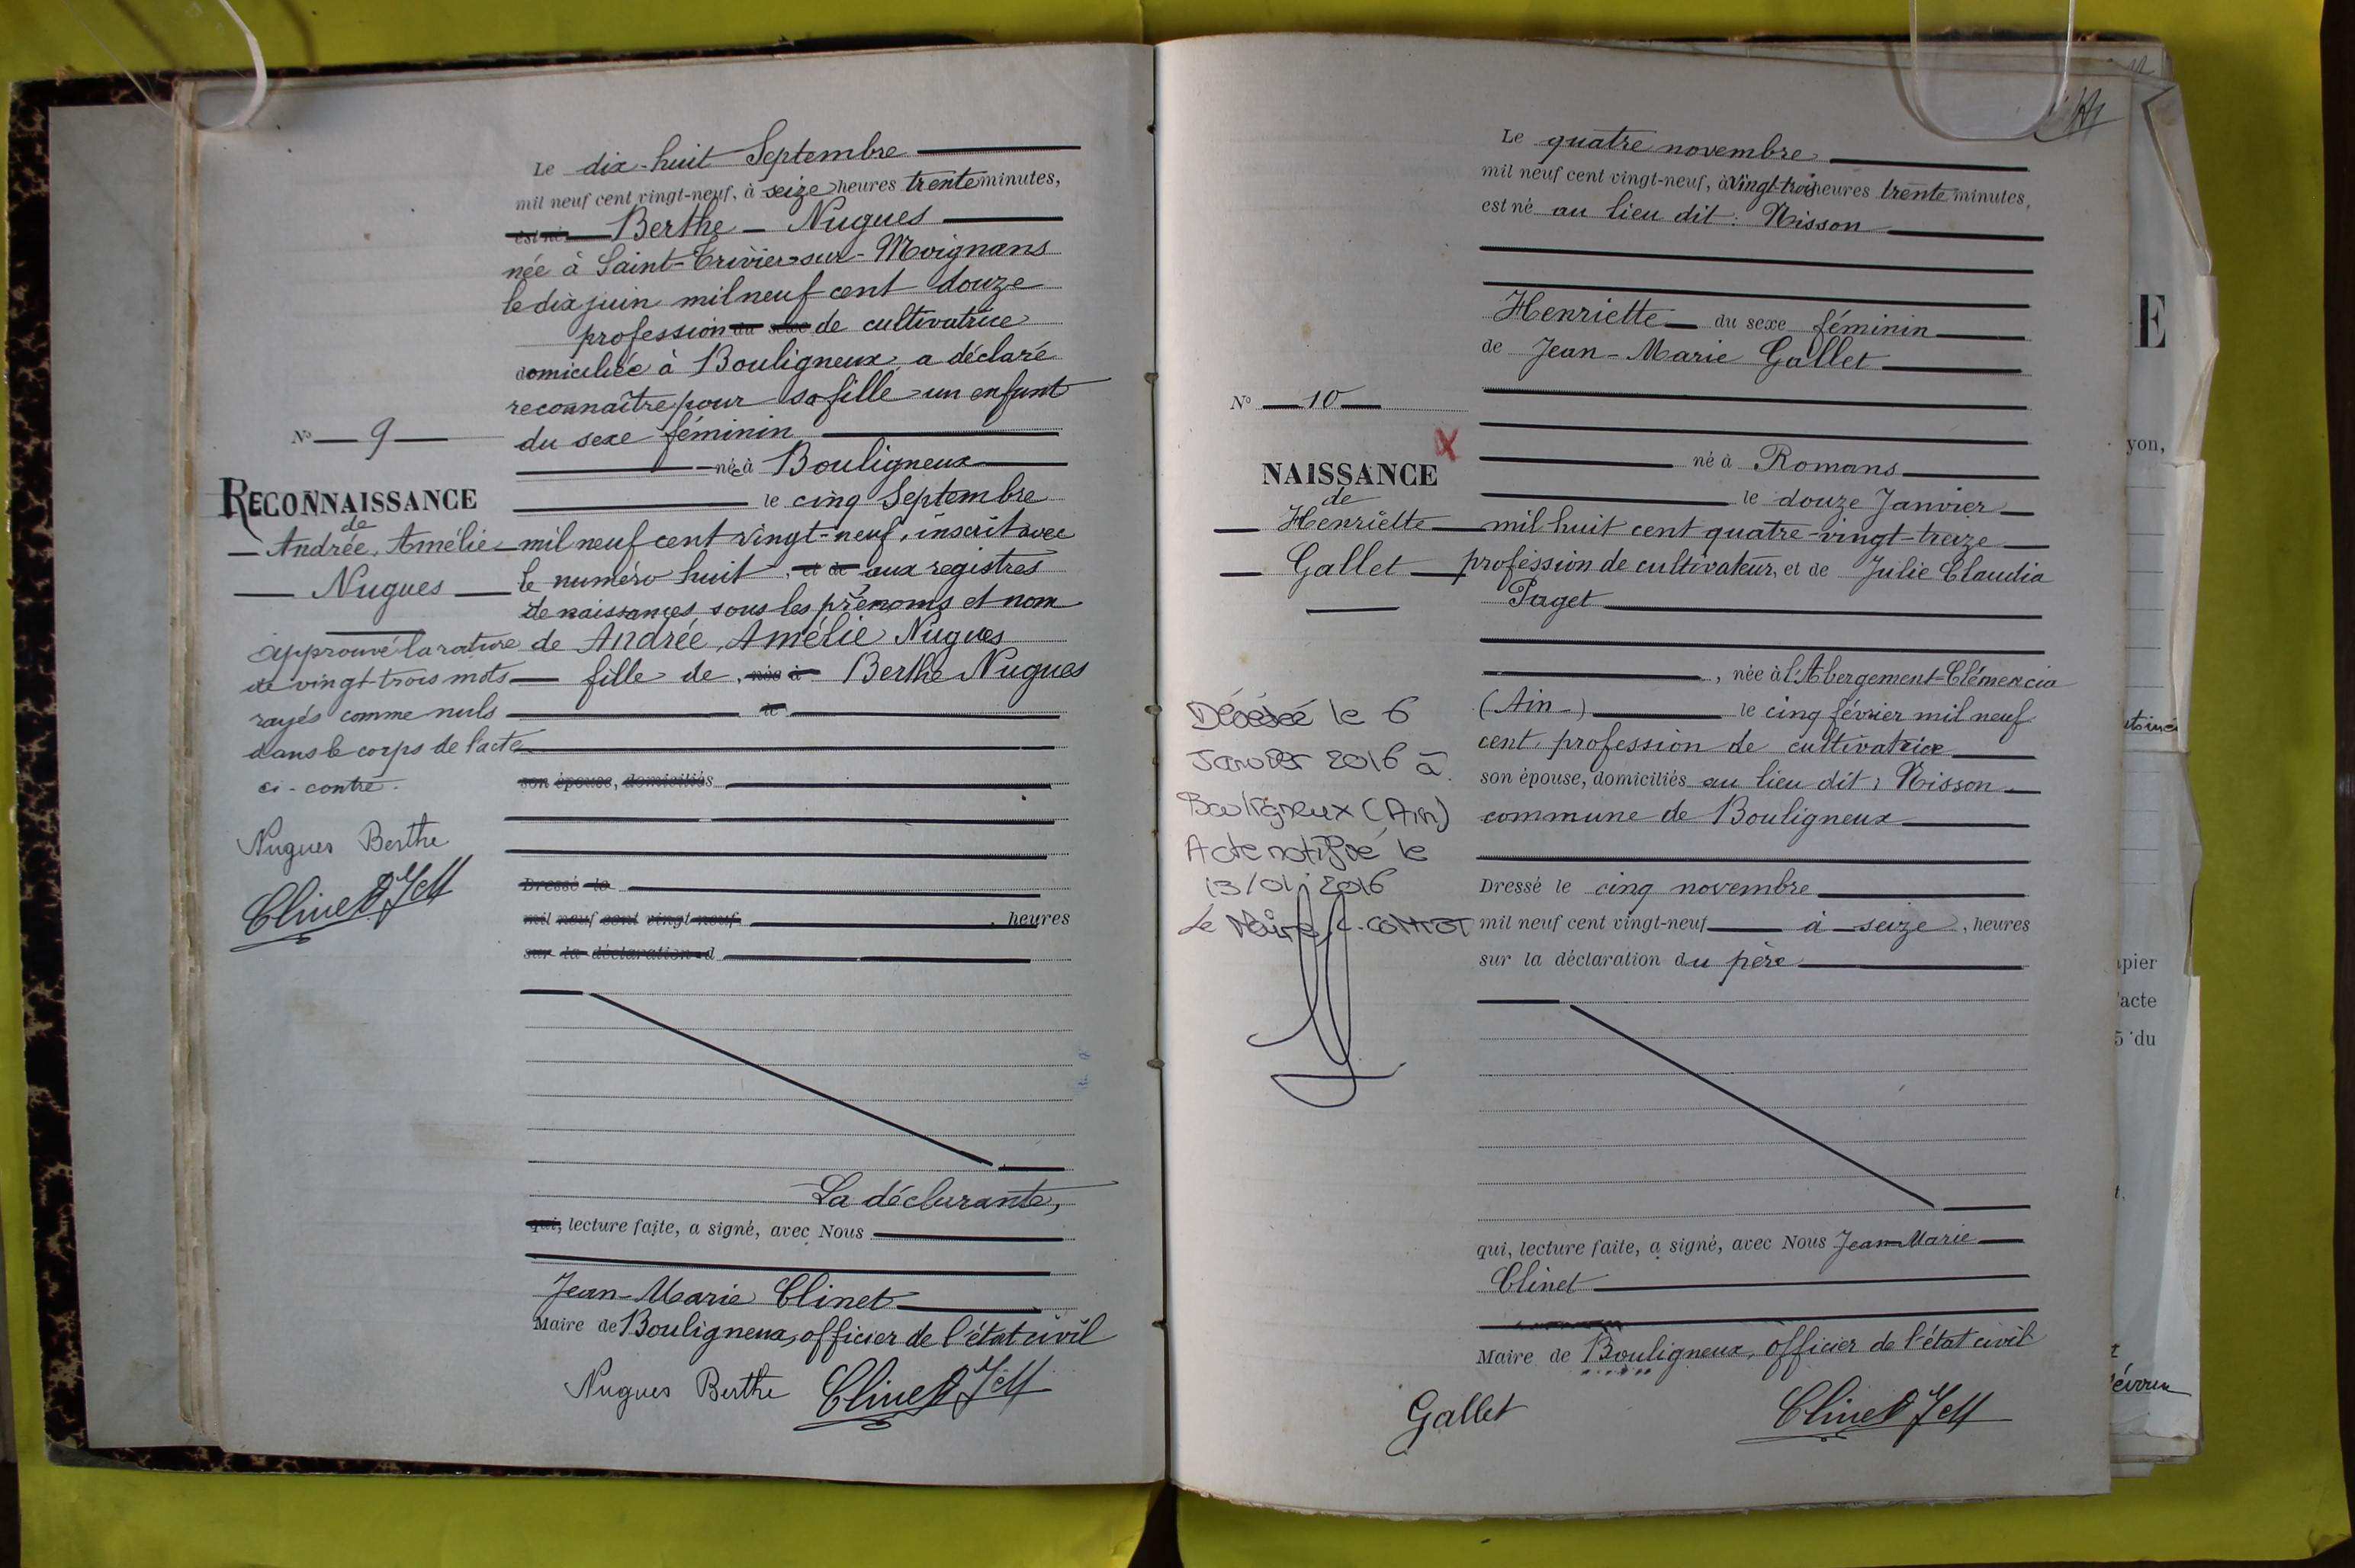 Le dix-huit Septembre
mil neuf cent vingt-neuf, à seize heures trente minutes,
est né Berthe - Nugues
née à Saint-Trivier-sur-Moignans
le dix juin mil neuf cent douze
profession du sexe de cultivatrice
domiciliée à Bouligneux, a déclaré
reconnaître pour sa fille un enfant
du sexe féminin
née à Bouligneux
le cinq Septembre
mil neuf cent vingt-neuf, inscrit avec
le numéro huit, et de aux registres
de naissances sous les prénoms et nom
de Andrée, Amélie Nugues
fille de, née à Berthe Nugues
le
son épouse, domiciliés
Dressé le
mil neuf cent vingt-neuf, heures
sur la déclaration d
La déclarante,
qui, lecture faite, a signé, avec Nous
Jean-Marie Clinet
Maire de Bouligneux, officier de l'état civil
Nugues Berthe Clinet JM
N° 9
RECONNAISSANCE
de
Andrée, Amélie
Nugues
approuvé la rature
de vingt-trois mots
rayés comme nuls
dans le corps de l'acte
ci-contre.
Nugues Berthe
Clinet JM
Le quatre novembre
mil neuf cent vingt-neuf, à vingt-trois heures trente minutes,
est né au lieu dit: Nisson
Henriette du sexe féminin
de Jean-Marie Gallet
né à Romans
le douze Janvier
mil huit cent quatre-vingt-treize
profession de cultivateur, et de Julie Claudia
Paget
, née à l'Abergement-Clémencia
(Ain-) le cinq février mil neuf
cent, profession de cultivatrice
son épouse, domiciliés au lieu dit: Nisson
commune de Bouligneux
Dressé le cinq novembre
mil neuf cent vingt-neuf à seize, heures
sur la déclaration du père
qui, lecture faite, a signé, avec Nous Jean-Marie
Clinet
Maire de Bouligneux, officier de l'état civil
Gallet Clinet JM
N° 10
NAISSANCE
de
Henriette
Gallet
Décédée le 6
Janvier 2016 à
Bouligneux (Ain)
Acte notifié le
13/01/2016
Le Maire
E
yon,
pier
'acte
5 du